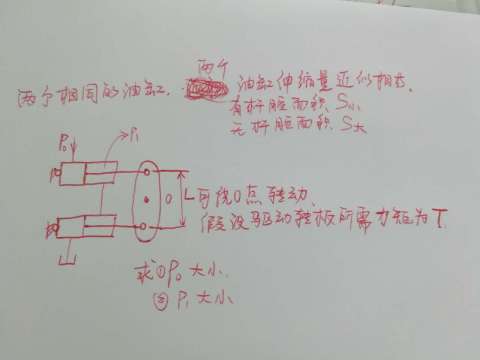 两个相同的油缸. 两个油缸伸缩量近似相等.
有杆腔面积 S小
无杆腔面积 S大
P₀
P₁
O
L
可绕O点转动.
假设驱动转板所需力矩为 T.
求①P₀大小.
②P₁大小